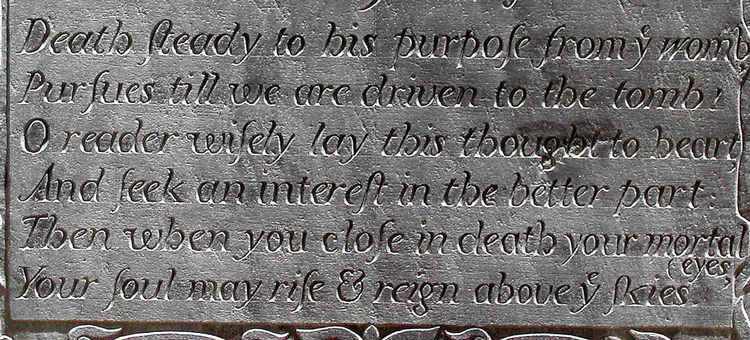 Death ſteady to his purpoſe from yͤ womb
Purſues till we are driven to the tomb:
O reader wiſely lay this thought to heart
And ſeek an intereſt in the better part:
Then when you cloſe in death your mortal
(eyes,
Your ſoul may riſe & reign above yͤ ſkies.